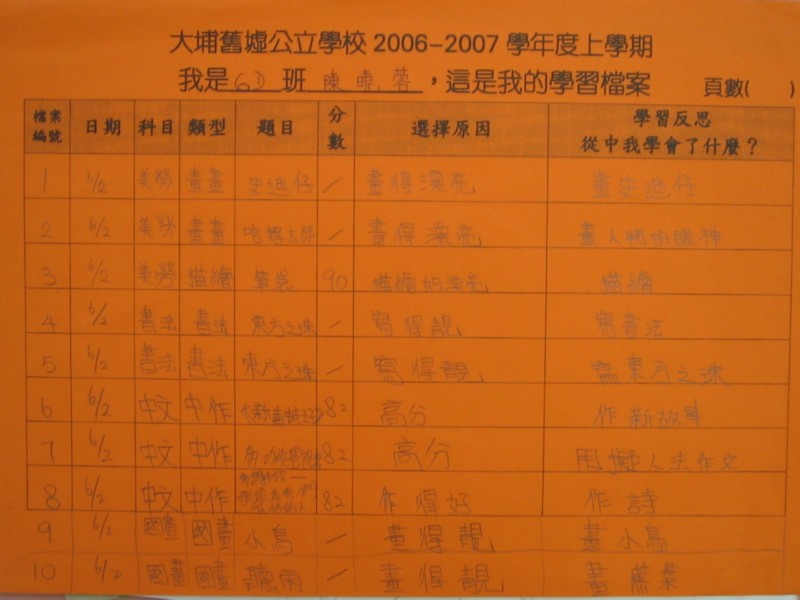 大埔舊墟公立學校 2006-2007 學年度上學期
我是 6D 班 陳曉蓉，這是我的學習檔案 頁數( )
檔案編號 日期 科目 類型 題目 分數 選擇原因 學習反思 從中我學會了什麼？
1 6/2 美勞 畫畫 史迪仔 / 畫得漂亮 畫史迪仔
2 6/2 美勞 畫畫 哈姆太郎 / 畫得漂亮 畫人物的眼神
3 6/2 美勞 描繪 筆袋 90 描繪的漂亮 描繪
4 6/2 書法 書法 東方之珠 / 寫得靚 寫書法
5 6/2 書法 書法 東方之珠 / 寫得靚 寫東方之珠
6 6/2 中文 中作 82 高分 作新故事
7 6/2 中文 中作 82 高分 用擬人法作文
8 6/2 中文 中作 82 作得好 作詩
9 6/2 國畫 國畫 小鳥 / 畫得靚 畫小鳥
10 6/2 國畫 國畫 聽雨 / 畫得靚 畫蕉葉